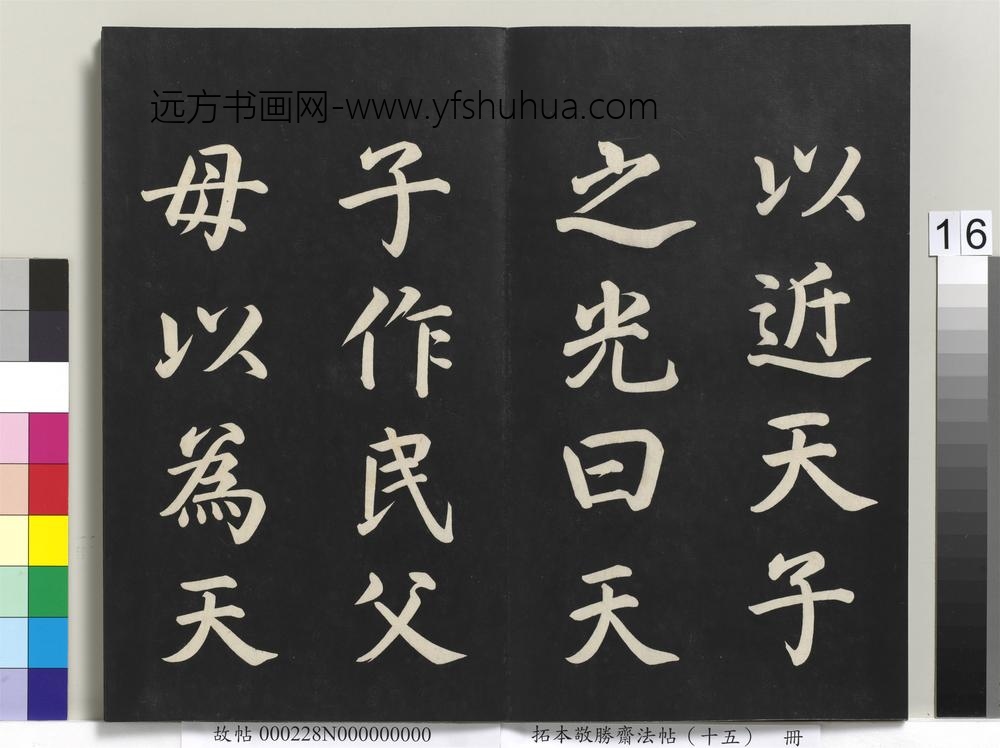 远方书画网-www.yfshuhua.com
以近天子
之光曰天
子作民父
母以為天
16
故帖 000228N000000000
拓本敬勝齋法帖（十五） 冊